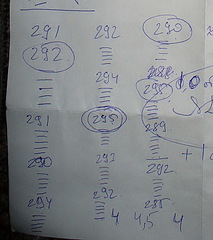 291 292 290
292
294 288
291 295 289
290 293 292
294 292 285
4 4,5 4